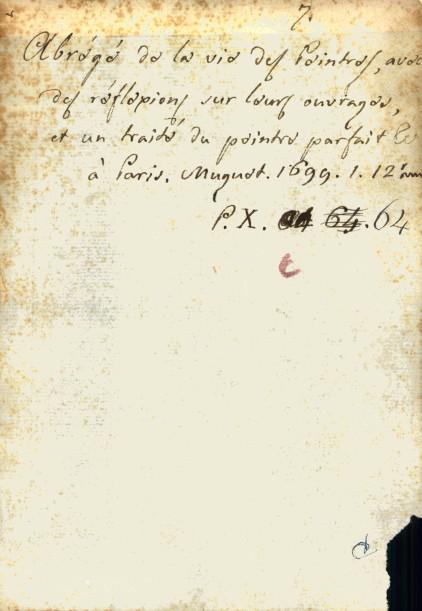 7.
Abrégé de la vie des Peintres, avec
des réflexions sur leurs ouvrages,
et un traité du peintre parfait
à Paris. Muguet. 1699. 1. 12°
P. X. 64 64. 64
c